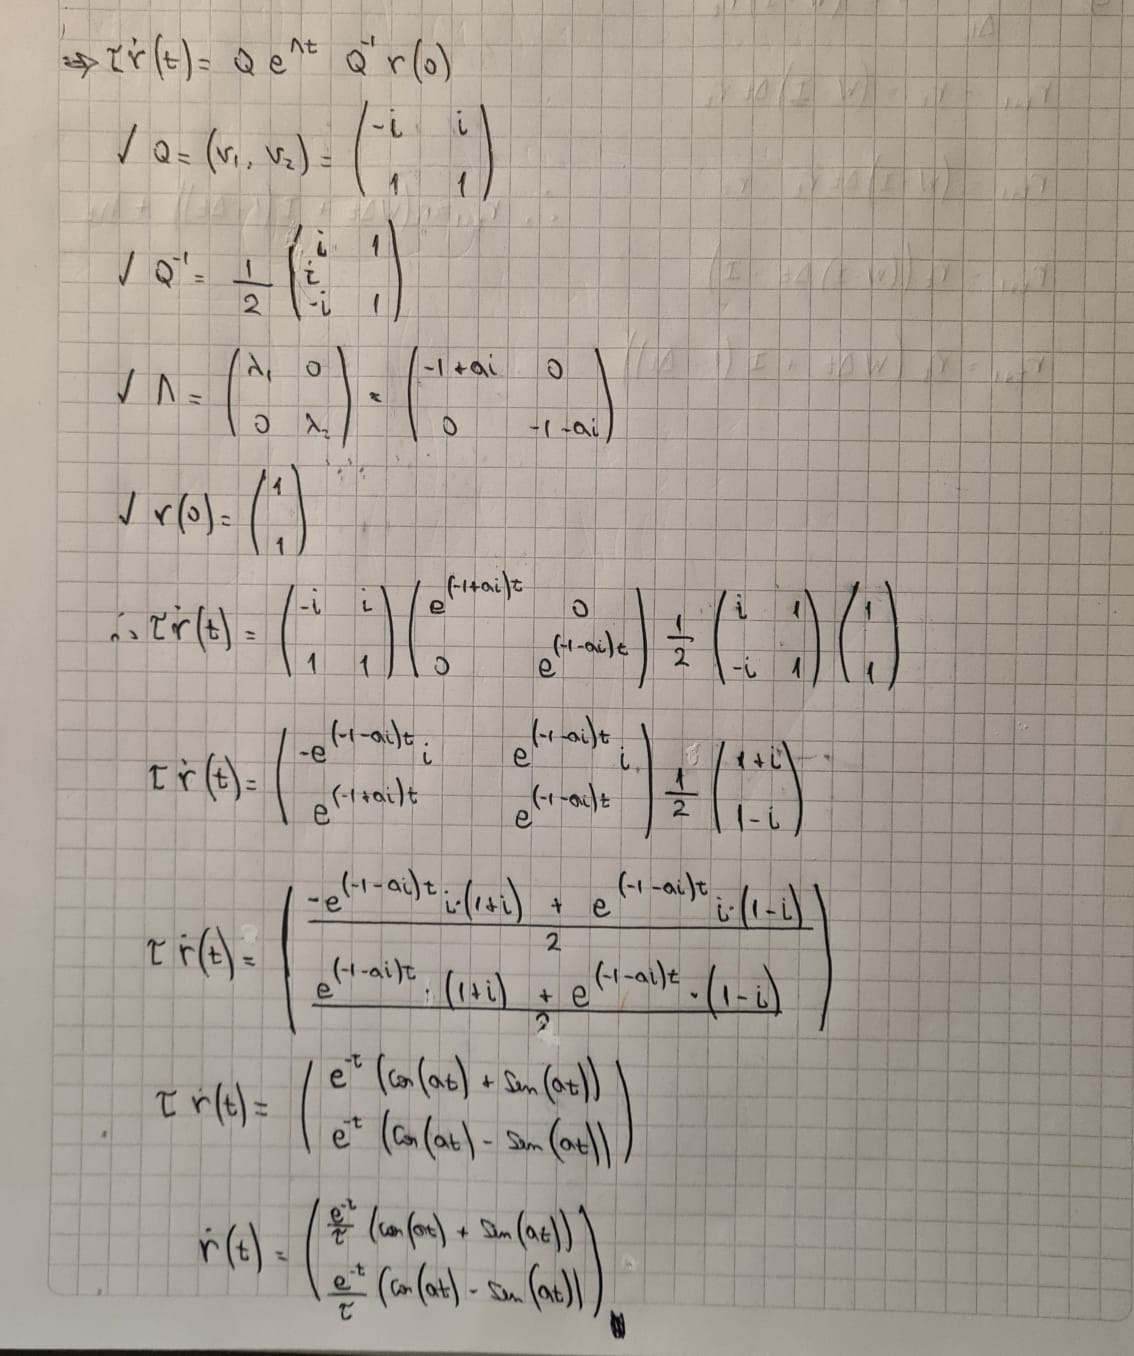 ⇒ τṙ(t) = Q e^{Λt} Q^{-1} r(0)
✓ Q = (v₁, v₂) = ( -i i ; 1 1 )
✓ Q^{-1} = 1/2 ( i 1 ; i -i 1 )
✓ Λ = ( λ₁ 0 ; 0 λ₂ ) = ( -1+ai 0 ; 0 -1-ai )
✓ r(0) = ( 1 ; 1 )
∴ τṙ(t) = ( -i i ; 1 1 ) ( e^{(-1+ai)t} 0 ; 0 e^{(-1-ai)t} ) 1/2 ( i 1 ; -i 1 ) ( 1 ; 1 )
τṙ(t) = ( -e^{(-1-ai)t} i e^{(-1-ai)t} i ; e^{(-1+ai)t} e^{(-1-ai)t} ) 1/2 ( 1+i ; 1-i )
τṙ(t) = ( (-e^{(-1-ai)t} i·(1+i) + e^{(-1-ai)t} i·(1-i))/2 ; (e^{(-1-ai)t} · (1+i) + e^{(-1-ai)t} · (1-i))/2 )
τṙ(t) = ( e^{-t} (cos(at) + sen(at)) ; e^{-t} (cos(at) - sen(at)) )
ṙ(t) = ( e^{-t}/τ (cos(at) + sen(at)) ; e^{-t}/τ (cos(at) - sen(at)) )